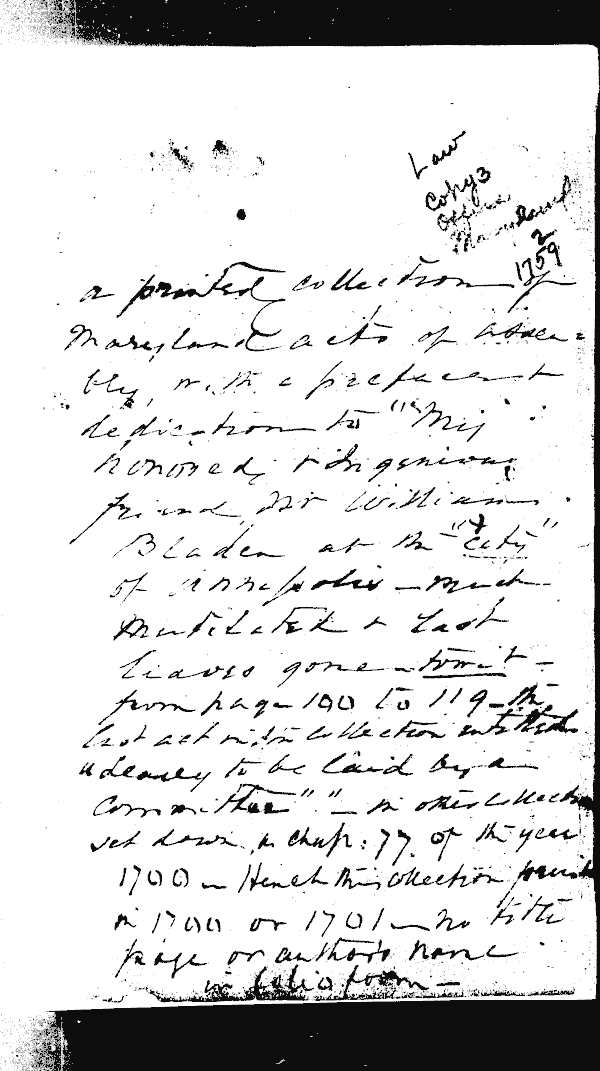 Law
Copy 3
Office
Maryland
2
1759
a printed collection of
Maryland acts of assem=
bly, with a preface and
dedication to "My
honored, & Ingenious
friend, Mr William
Bladen at the "City"
of Annapolis — much
mutilated & last
leaves gone — towit —
from page 100 to 119 — the
last act in this collection entitled
"Leavey to be laid by a
Committee" " — in other collections
set down in chap: 77. of the year
1700 — Hence this collection printed
in 1700 or 1701 — no title
page or author's name
in folio form —